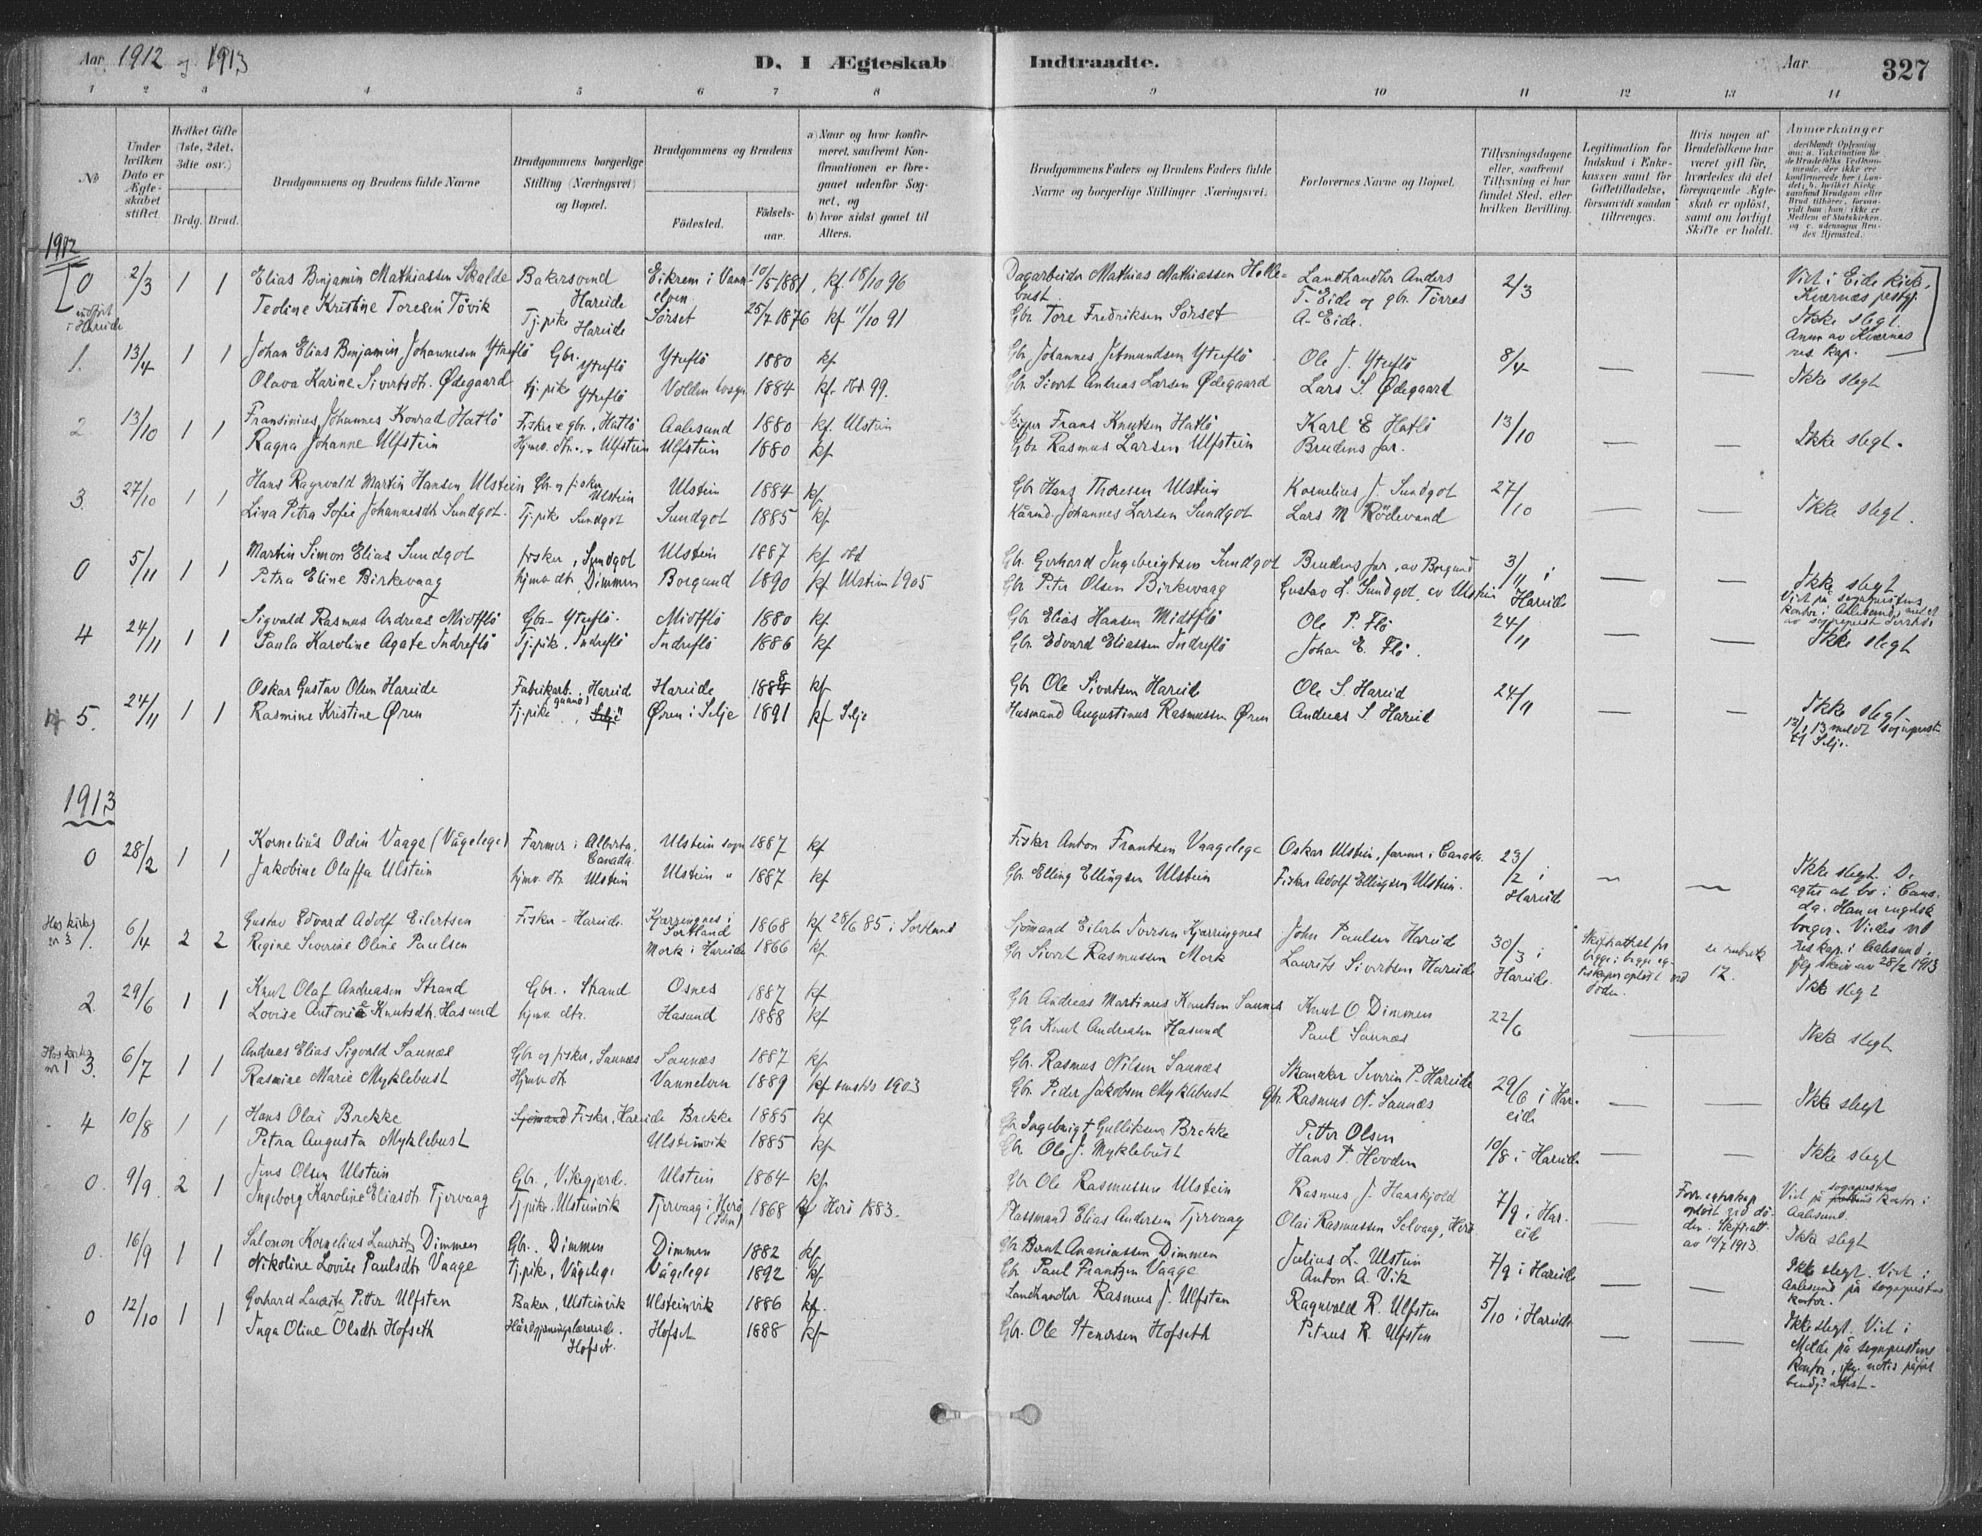 Aar 1912 og 1913
D. I Ægteskab Indtraadte.
Aar 327
1 2 3 4 5 6 7 8 9 10 11 12 13 14
No
Under hvilken Dato er Ægteskabet stiftet
Hvilket Gifte (1ste, 2det, 3die osv.)
Brdg. Brud.
Brudgommens og Brudens fulde Navne
Brudgommens borgerlige Stilling (Næringsvei) og Bopæl.
Brudgommens og Brudens
Fødested.
Fødselsaar.
a) Naar og hvor konfirmeret, saafremt Konfirmationen er foregaaet udenfor Sognet, og
b) hvor sidst gaaet til Alters.
Brudgommens Faders og Brudens Faders fulde Navne og borgerlige Stillinger Næringsvei.
Forlovernes Navne og Bopæl.
Tillysningsdagene eller, saafremt Tillysning ei har fundet Sted, efter hvilken Bevilling.
Legitimation for Indskud i Enkekassen samt for Giftetilladelse, forsaavidt saadan tiltrænges.
Hvis nogen af Brudefolkene har været gift før, hvorledes da det foregaaende Ægteskab er opløst, samt om lovligt Skifte er holdt.
Anmærkninger
1912
0 2/3 1 1 Elias Benjamin Mathiassen Skalde Bakersvend Hareide Eikrem i Vannelven 10/5-1881, kf 18/10 96 Dagarbeider Mathias Mathiassen Hellebust Landhandlr Anders T. Eide og gbr. Torres A. Eide. 2/3 Viet i Eide kirke, Kvernes prestgj. Ikke slegt.
indført i Hareide Teoline Kristine Toresen Tøvik Tj.pike Hareide Sørset 25/7 1876 kf 11/10 91 Gbr Tore Fredriksen Sørset Anm av Kvernes res. kap.
1. 13/4 1 1 Johan Elias Benjamin Johannesen Ytreflø Gbr. Ytreflø Ytreflø 1880 kf Gbr Johannes Jetmundsen Ytreflø Ole J. Ytreflø 8/4 — — Ikke slegt
Olava Karine Sivertsdt. Ødegaard tj. pike Ytreflø Volden sogn 1884 kf. 99. Gbr. Sivert Andreas Larsen Ødegaard Lars S. Ødegaard
2 13/10 1 1 Fransinius Johannes Konrad Hatlø Fisker e gbr, Hatlø Aalesund 1880 kf. Ulstein Frans Knutsen Hatlø Karl E Hatlø 13/10 — — Ikke slegt.
Ragna Johanne Ulfstein Hjmv. dtr. Ulfstein Ulfstein 1880 kf Gbr Rasmus Larsen Ulfstein Brudens far.
3. 27/10 1 1 Hans Ragnvald Martin Hansen Ulstein Gbr og fisker Ulstein Ulstein 1884 kf Gbr Hans Thoresen Ulstein Kornelius J. Sundgot 27/10 — — Ikke slegt.
Lina Petra Sofie Johannesdt. Sundgot. Tj.pike Sundgot Sundgot 1885 kf Kårmd. Johannes Larsen Sundgot Lars M Rødevand
0 5/11 1 1 Martin Simon Elias Sundgot fisker, Sundgot Ulstein 1887 kf Gbr. Gerhard Ingebrigtsen Sundgot Brudens far, av Borgund 3/11 i Hareid — — Ikke slegt
Petra Eline Birkevaag hjmv. dtr, Dimmen Borgund 1890 kf Ulstein 1905 Gbr Peter Olsen Birkevaag Gustav L. Sundgot, av Ulstein Viet på sogneprestens kontor i Aalesund, meldt av sogneprest
4 24/11 1 1 Sigvald Rasmus Andreas Midtflø Gbr- Ytreflø. Midtflø 1880 kf Gbr Elias Hansen Midtflø Ole P. Flø 24/11 — — Ikke slegt
Paula Karoline Agate Indreflø Tj.pik. Indreflø Indreflø 1886 kf Gbr. Edvard Eliassen Indreflø Johan E. Flø.
5. 24/11 1 1 Oskar Gustav Olsen Hareide Fabrikarb., Hareid Hareide 1888 kf Gbr Ole Sivertsen Hareid Ole S. Hareid 24/11 — — Ikke slegt
Rasmine Kristine Øren tj.pike Øren i Selje 1891 kf Selje Husmand Augustinus Rasmussen Øren Andreas S. Hareid 13 meldt sogneprest til Selje.
1913
0 28/2 1 1 Kornelius Odin Vaage (Vågelege) Farmer i Alberta, Canada. Ulstein sogn 1887 kf Fisker Anton Frantsen Vaagelege Oskar Ulstein, farmer i Canada. 23/2 i Hareid — — Ikke slegt
Jakobine Oluffa Ulstein hjmv. dtr Ulstein Ulstein " 1887 kf Gbr. Elling Ellingsen Ulstein Fisker Adolf Ellingsen Ulstein. agter at bo i Canada. Han er engelsk borger. Viedes ved res. kap. i Aalesund, ifølg skriv av 28/2 1913
Hos kirkeb nr 3 1. 6/4 2 2 Gustav Edvard Adolf Eilertsen Fisker - Hareide. Kjerringnes i Sortland 1868 kf 28/6 85 i Sortland Sjømand Eilert Iversen Kjerringnes John Paulsen Hareid 30/3 i Hareide. Skifteattest for begge i begge egteskaper opløst ved døden. se rubrik 12.
Regine Severine Oline Paulsen Mork i Hareide 1866 kf Gbr Sivert Rasmussen Mork Laurits Sivertsen Hareide
2. 29/6 1 1 Knut Olaf Andreasen Strand Gbr.. Strand Osnes 1887 kf Gbr Andreas Martinus Knutsen Saunes Knut O Dimmen 22/6 — — Ikke slegt
Lovise Antonie Knutsdt. Hasund hjmv. dtr. Hasund 1888 kf Gbr Knut Andreasen Hasund Paul Saunæs Ikke slegt
3. 6/7 1 1 Andreas Elias Sigvald Saunæs Gbr og fisker, Saunæs Saunæs 1887 kf Gbr. Rasmus Nilsen Saunæs Skomaker Severin P. Hareide 29/6 i Hareide — — Ikke slegt
Rasmine Marie Myklebust Hjmv. dtr Vannelven 1889 kf 1903 Gbr. Peder Jakobsen Myklebust Gbr Rasmus N. Saunæs
4 10/8 1 1 Hans Olai Brekke Sjømand Fisker, Hareide Brekke 1885 kf Gbr Ingebrigt Gulliksen Brekke Petter Olsen 10/8 i Hareide — — Ikke slegt
Petra Augusta Myklebust Ulsteinvik 1885 kf Gbr. Ole J. Myklebust Hans P. Hovden
0. 9/9. 2 1 Jens Olsen Ulstein Gbr, Vikegjærd. Ulstein 1864 kf Gbr Ole Rasmussen Ulstein Rasmus J. Hanskjold 7/9 i Hareid Forr. egteskap opløst ved døden. Skifteatt. av 10/7 1913. Viet på sogneprestens kontor i Aalesund.
Ingeborg Karoline Eliasdt. Tjervaag Tj.pike. Ulsteinvik Tjervaag i Herø 1868 kf Herø 1883. Plassmand Elias Andersen Tjervaag Olai Rasmussen Selvaag, Herø Ikke slegt
0. 16/9 1 1 Salomon Kornelius Lauritz Dimmen Gbr.. Dimmen Dimmen 1882 kf. Gbr Bernt Ananiassen Dimmen Julius L. Ulstein 7/9 i Hareide — — Ikke slegt. Viet i Aalesund på sogneprestens kontor.
Nikoline Lovise Paulsdtr Vaage Tj.pike, Vågelege Vågelege 1892 kf. Gbr. Paul Frantzen Vaage Anton A. Vik
0 12/10 1 1 Gerhard Lauritz Petter Ulfsten Baker, Ulsteinvik Ulsteinvik 1886 kf. Landhandler Rasmus J. Ulfsten Ragnvald R. Ulfsten 5/10 i Hareide — — Ikke slegt. Viet i Molde på sogneprestens kontor,
Inga Oline Olsdtr Hofseth Hofset. Hofset 1888 kf Gbr. Ole Stensen Hofseth Petrus R. Ulfsten